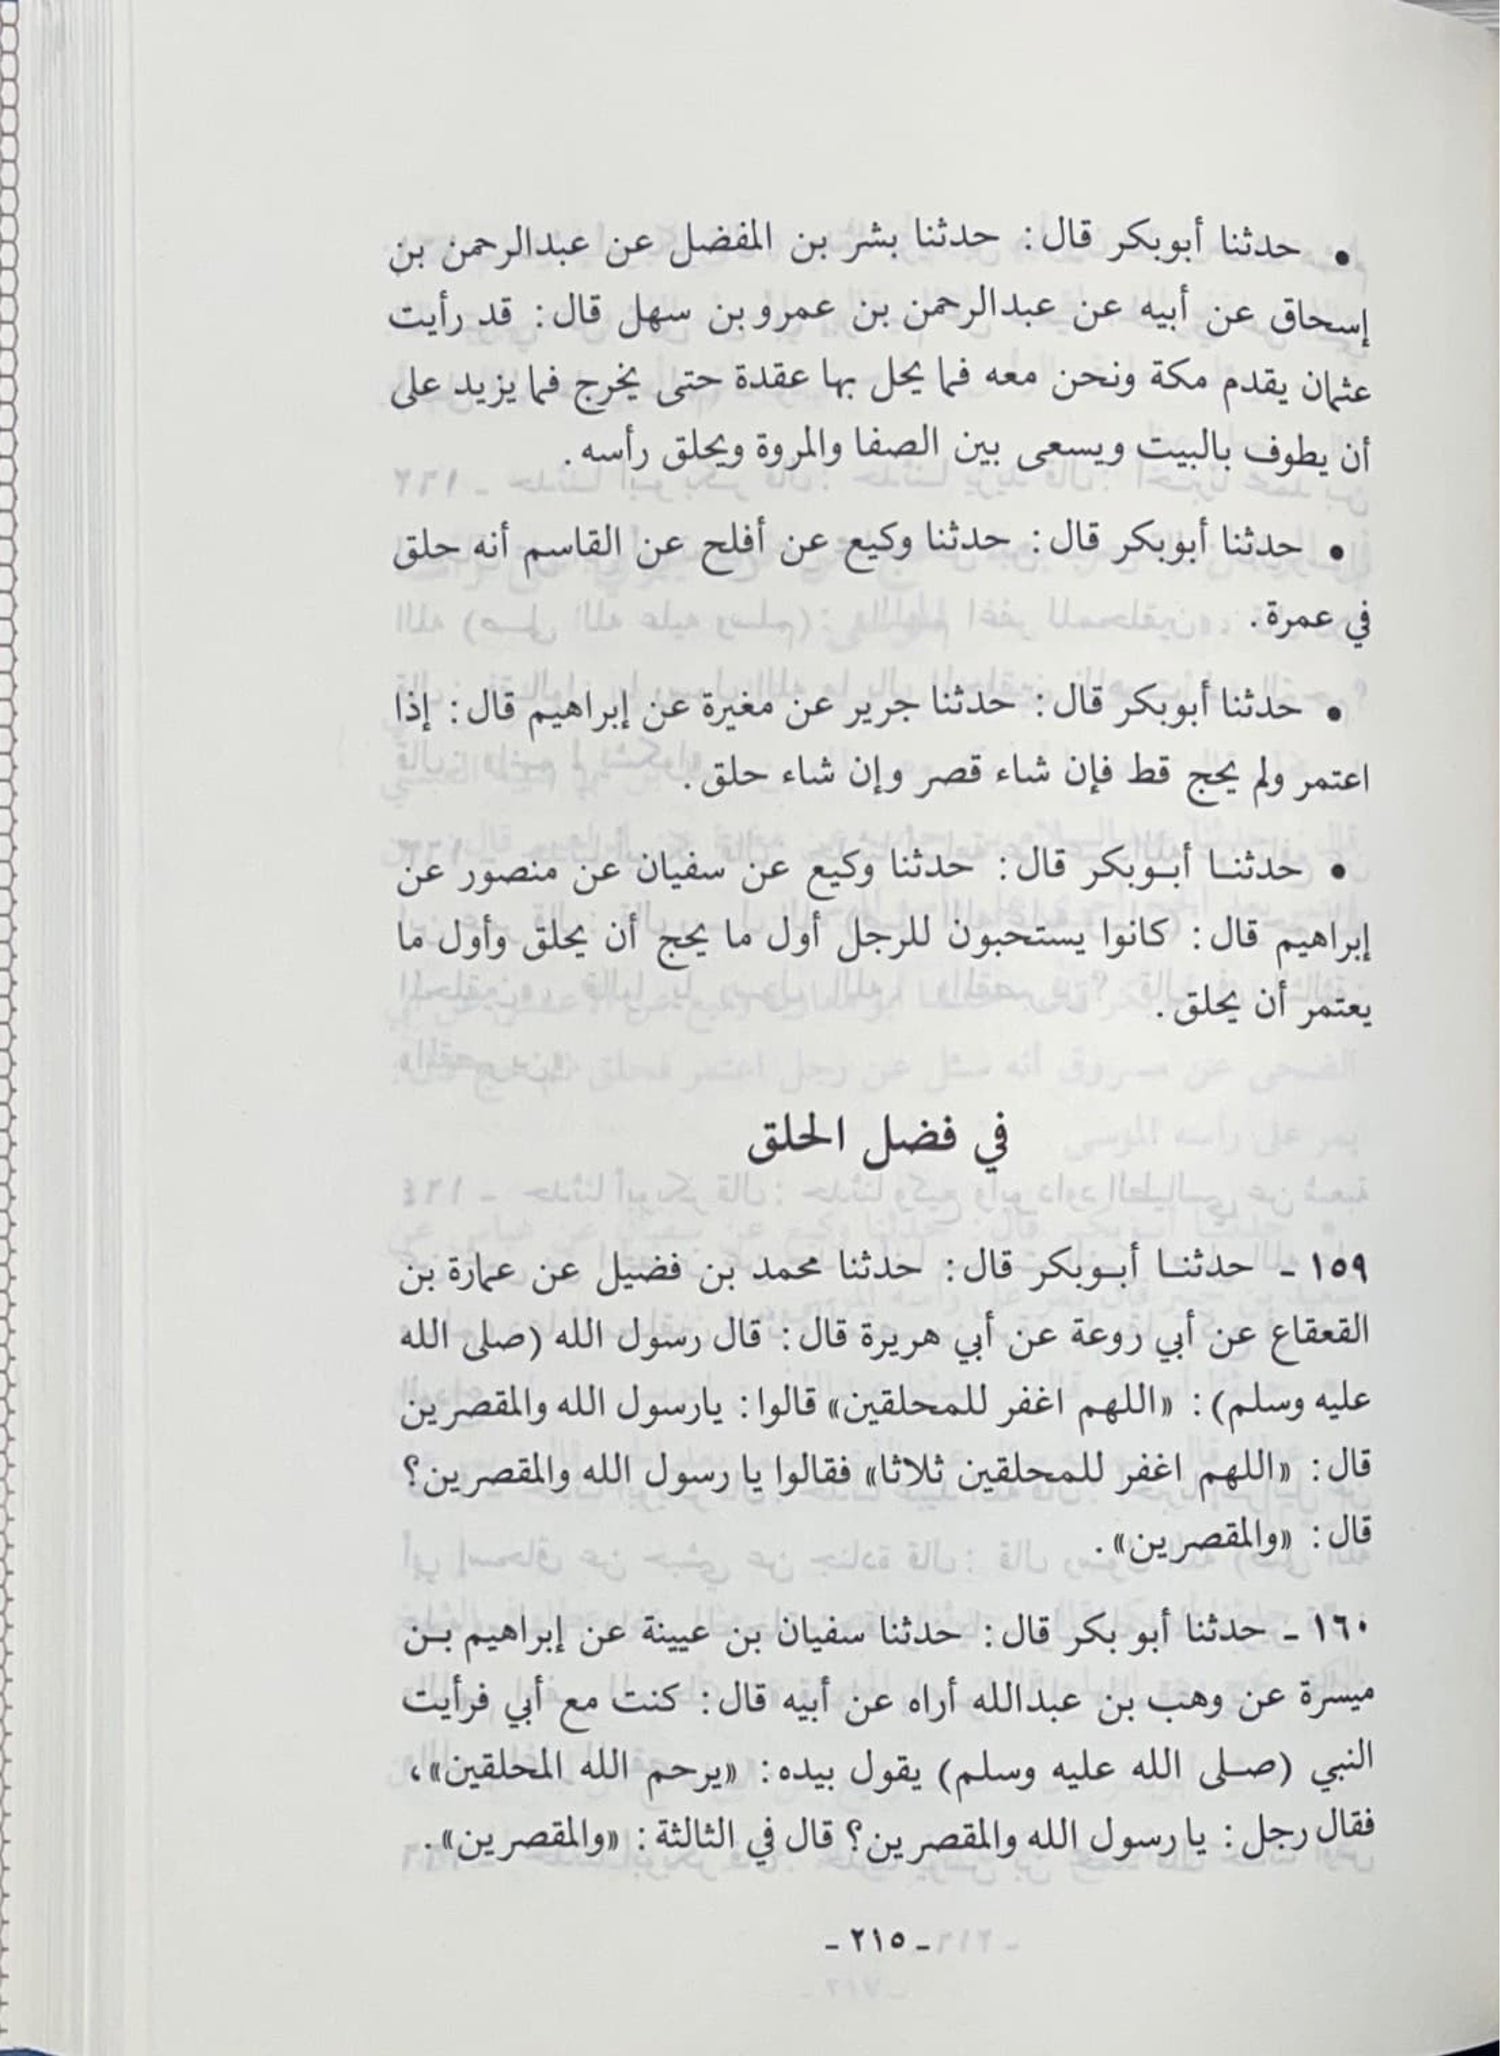 • حدثنا أبوبكر قال: حدثنا بشر بن المفضل عن عبدالرحمن بن
إسحاق عن أبيه عن عبدالرحمن بن عمرو بن سهل قال: قد رأيت
عثمان يقدم مكة ونحن معه فما يحل بها عقدة حتى يخرج فما يزيد على
أن يطوف بالبيت ويسعى بين الصفا والمروة ويحلق رأسه.
• حدثنا أبوبكر قال: حدثنا وكيع عن أفلح عن القاسم أنه حلق
في عمرة.
• حدثنا أبوبكر قال: حدثنا جرير عن مغيرة عن إبراهيم قال: إذا
اعتمر ولم يحج قط فإن شاء قصر وإن شاء حلق.
• حدثنا أبوبكر قال: حدثنا وكيع عن سفيان عن منصور عن
إبراهيم قال: كانوا يستحبون للرجل أول ما يحج أن يحلق وأول ما
يعتمر أن يحلق.
في فضل الحلق
١٥٩ - حدثنا أبوبكر قال: حدثنا محمد بن فضيل عن عمارة بن
القعقاع عن أبي روعة عن أبي هريرة قال: قال رسول الله (صلى الله
عليه وسلم): «اللهم اغفر للمحلقين» قالوا: يارسول الله والمقصرين
قال: «اللهم اغفر للمحلقين ثلاثا» فقالوا يا رسول الله والمقصرين؟
قال: «والمقصرين».
١٦٠ - حدثنا أبو بكر قال: حدثنا سفيان بن عيينة عن إبراهيم بن
ميسرة عن وهب بن عبدالله أراه عن أبيه قال: كنت مع أبي فرأيت
النبي (صلى الله عليه وسلم) يقول بيده: «يرحم الله المحلقين»،
فقال رجل: يا رسول الله والمقصرين؟ قال في الثالثة: «والمقصرين».
- ٢١٥ -